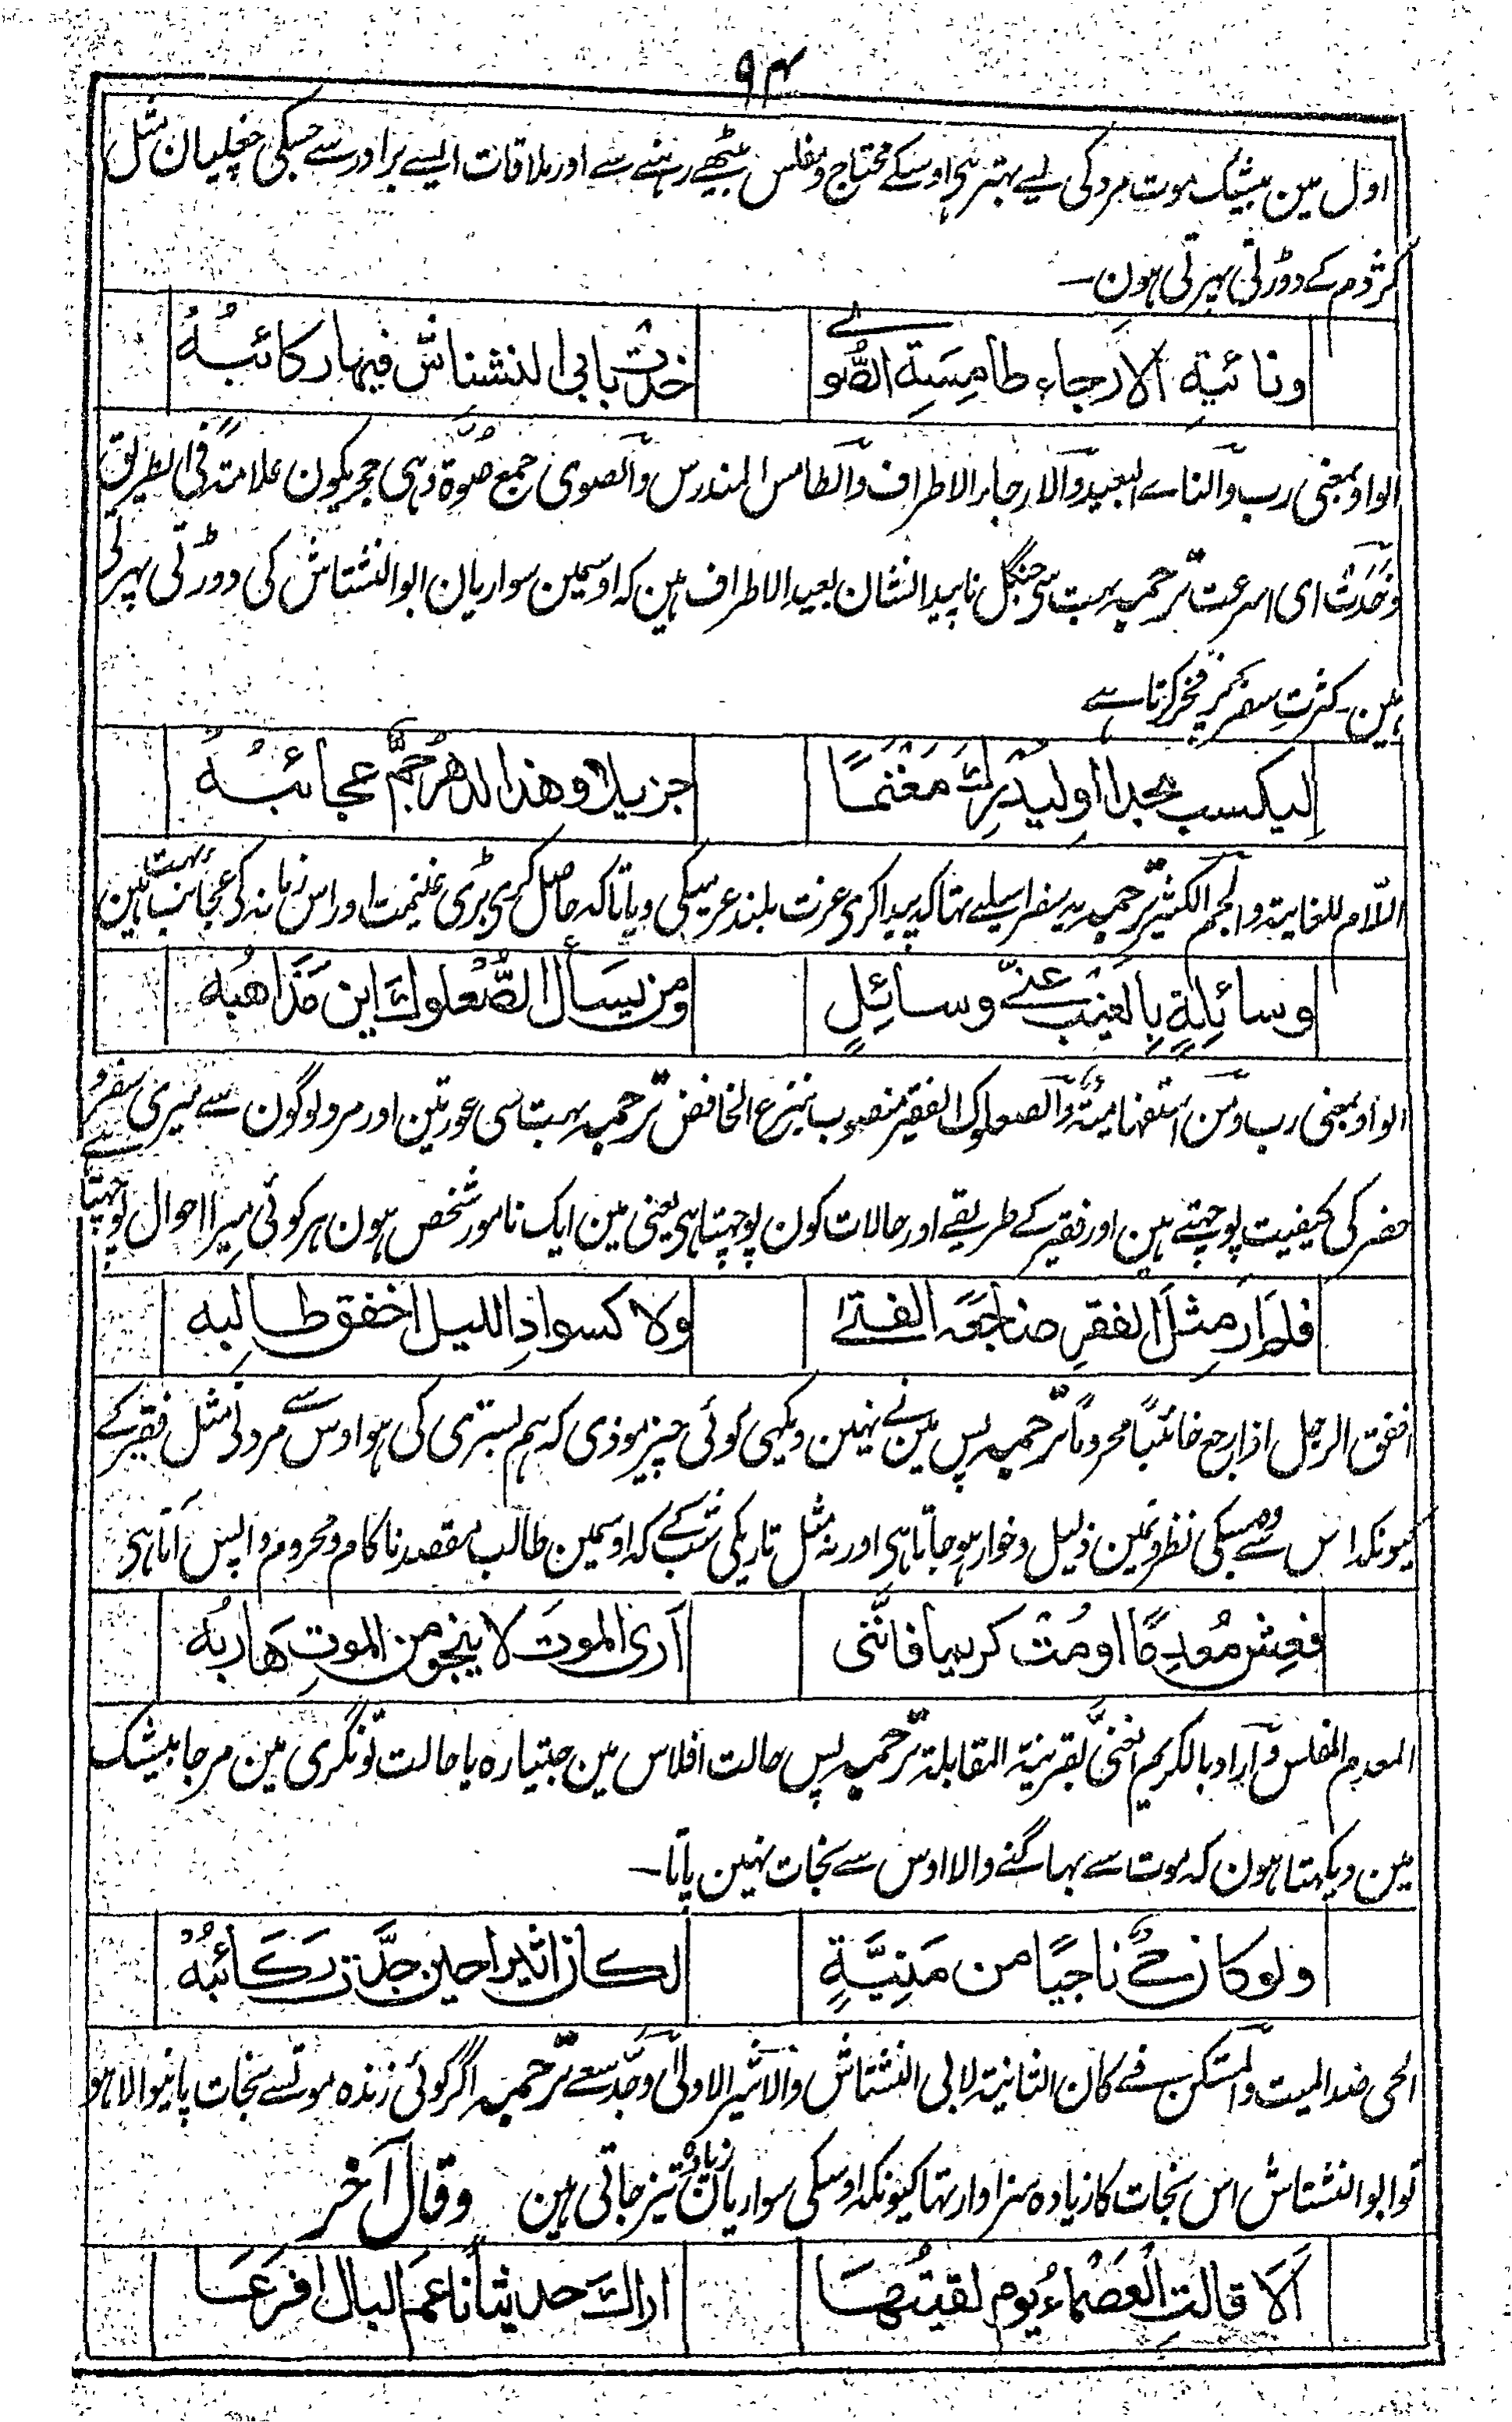 ۹۴
اول مین بیشک موت مرد کی لیے بہتر ہی اوسکے محتاج و مفلس بیٹھے رہنے سے اور ملاقات ایسے برادر سے جسکی چغلیان مثل
کژدم کے دوڑتی پہرتی ہون۔
ونائية الارجاء طامِسَةِ الصُّوے
خدت بابی النشناش فیہا رکائبُهُ
الواو بمعنی رب والنائے البعید والارجاء الاطراف والطامس المندرس والصوی جمع صُوَّة وہی حجر یکون علامةً فی الطریق
وخَدَتْ ای اسرعت ترجمہ بہت سی جنگل ناپید النشان بعید الاطراف ہین کہ اوسمین سواریان ابو النشناش کی دوڑتی پہرتی
ہین۔ کثرت سفر پر فخر کرتا ہے
لِیکسب مجدا اولیُدرِكَ مَغْنَمًا
جزیلا وهذا الدهرُ جَمٌّ عجائبُهُ
اللام للغایة والجم الکثیر ترجمہ یہ سفر اسلیے تہا کہ پیدا کری عزت بلند عرب کی و یا تاکہ حاصل کری بڑی غنیمت اور اس زمانہ کی عجائب بہت ہین
وسائِلةٍ بِالغیب عنّے وسائِلٍ
ومن یسأل الصُّعلوكَ این مَذاهبُه
الواو بمعنی رب ومن استفہامیة والصعلوک الفقیر منصوب بنزع الخافض ترجمہ بہت سی عورتین اور مرد لوگون سے میری سفر و
حضر کی کیفیت پوچہتے ہین اور فقیر کے طریقے اور حالات کون پوچہتا ہی یعنی مین ایک نامور شخص ہون ہر کوئی میرا احوال پوچہتا ہے
فلم ار مِثلَ الفقرِ ضاجَعَه الفتے
ولا کسوادِ اللیل اخفق طالِبه
اخفق الرجل اذا رجع خائبًا محرومًا ترجمہ پس مین نے نہین دیکہی کوئی چیز موذی کہ ہم بستری کی ہو اوس سے مرد نی مثل فقیر کے
کیونکہ اس سے وہ سبکی نظرونمین ذلیل و خوار ہو جاتا ہی اور نہ مثل تاریکی شب کے کہ اوسمین طالب مقصد ناکام و محروم واپس آتا ہی
فعِش مُعدِمًا اومُت کریما فانّنی
اَری الموتَ لا ینجو من الموتِ هاربُه
المعدم المفلس واراد بالکریم الغنی بقرینة المقابلة ترجمہ پس حالت افلاس مین جیتا رہ یا حالت تونگری مین مر جا بیشک
مین دیکہتا ہون کہ موت سے بہاگنے والا اوس سے نجات نہین پاتا۔
ولو کان حیٌّ ناجیًا من مَنِیَّةٍ
لکان اثیرا حین جدَّت رَکَائبُهُ
الحی ضد المیت والمستکن فے کان الثانیة لابی النشناش والاثیر الاولی وجد سعے ترجمہ اگر کوئی زندہ موتسے نجات پانیوالا ہو
تو ابو النشناش اس نجات کا زیادہ سزاوار تہا کیونکہ اوسکی سواریان زیادہ تیز جاتی ہین وقال آخر
اَلَا قالتِ العَصماءُ یوم لقیتُهَا
اراكَ حدیثا ناعمَ البال افرَعَا